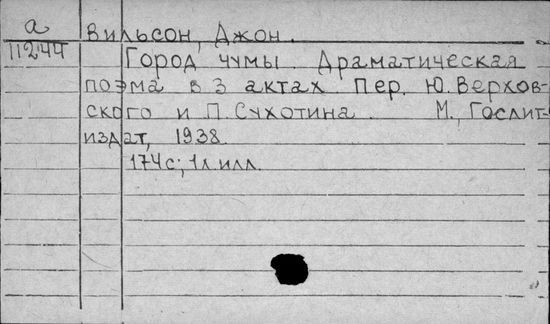 а
Вильсон, Джон.
11244
Город чумы. Драматическая
поэма в 3 актах. Пер. Ю. Верхов-
ского и П. Сухотина. М., Гослит-
издат, 1938.
174с; 1л.илл.